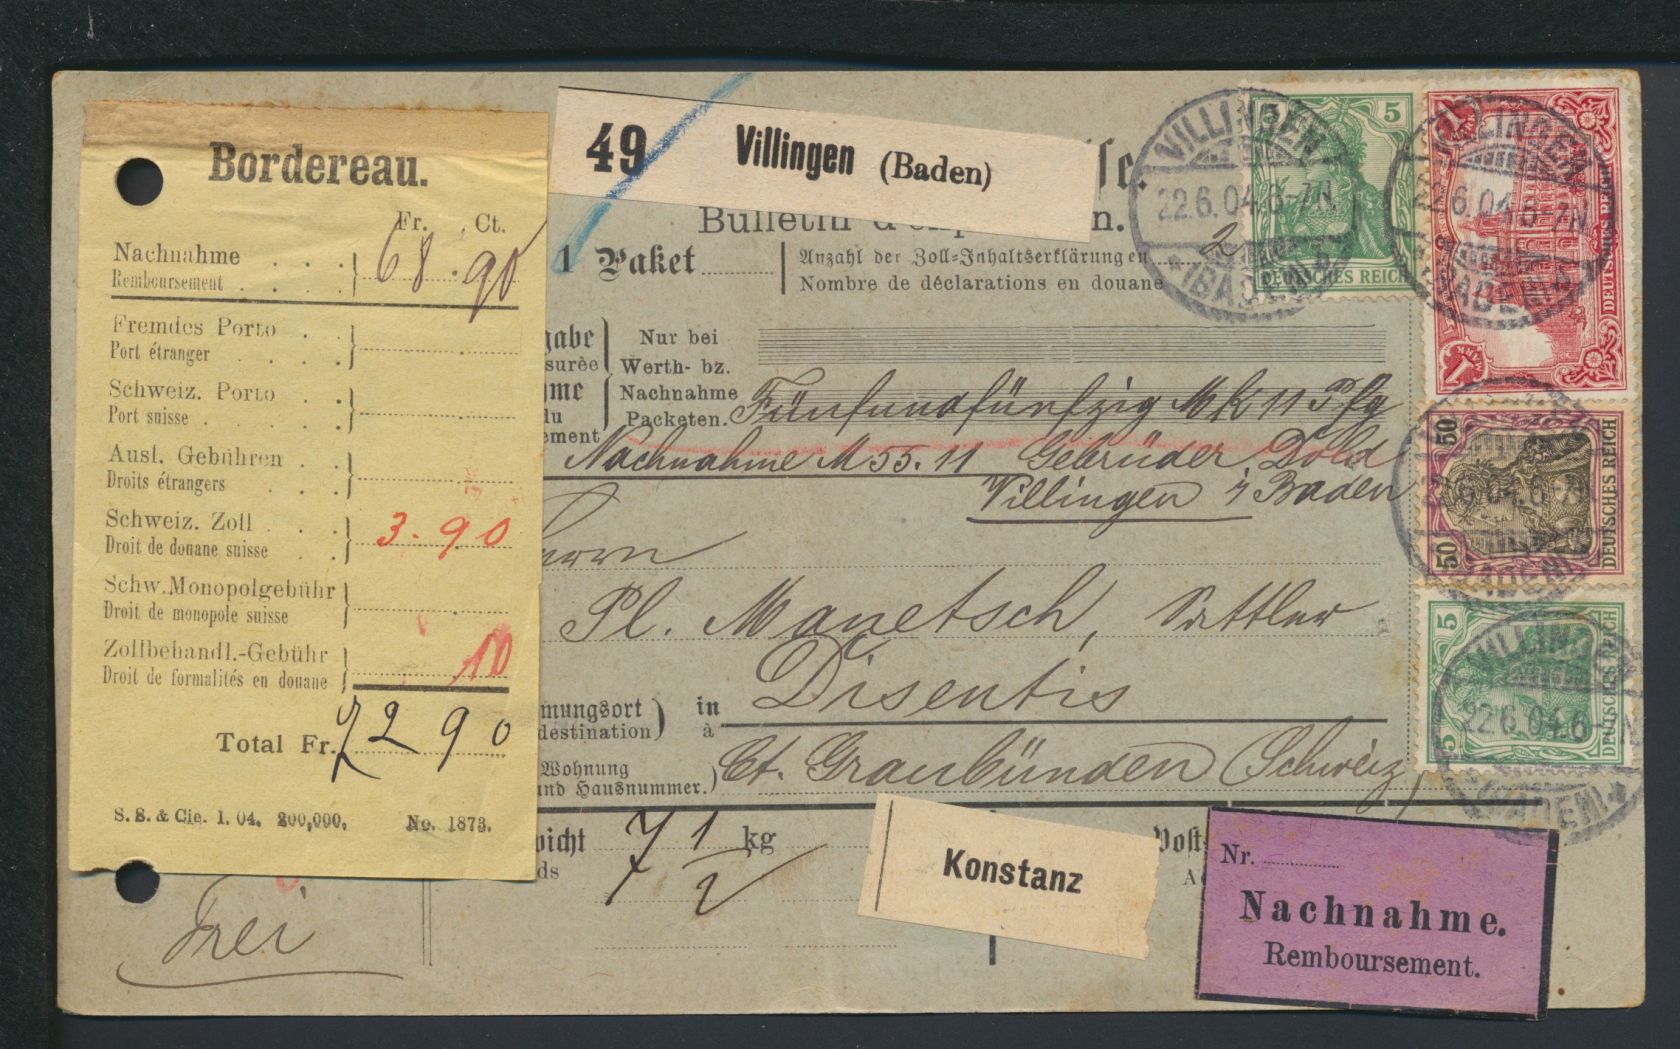 Bordereau.
Fr. Ct.
Nachnahme
Remboursement
68.90
Fremdes Porto
Port étranger
Schweiz. Porto
Port suisse
Ausl. Gebühren
Droits étrangers
Schweiz. Zoll
Droit de douane suisse
3.90
Schw. Monopolgebühr
Droit de monopole suisse
Zollbehandl.-Gebühr
Droit de formalités en douane
10
Total Fr. 72 90
S. S. & Cie. 1. 04. 200,000. No. 1873.
Frei
49 Villingen (Baden)
Bulletin d'exp
1 Paket
Anzahl der Zoll-Inhaltserklärungen
Nombre de déclarations en douane
2
Nur bei
Werth- bz.
Nachnahme
Packeten.
Fünfundfünfzig Mk 11 Pfg
Nachnahme M 55.11 Gebrüder Dold
Villingen i/Baden
Herrn
Pl. Manetsch, Sattler
mungsort) in Disentis
destination) à
Wohnung
und Hausnummer.) Ct. Graubünden (Schweiz)
wicht 7 1/2 kg
ds
Konstanz
Nr.
Nachnahme.
Remboursement.
VILLINGEN
22.6.04.6-7N
*(BADEN)
5 5
DEUTSCHES REICH
VILLINGEN
22.6.04.6-7N
(BADEN)
1 MARK
DEUTSCHES REICH
50 50
DEUTSCHES REICH
(BADEN)
5 5
DEUTSCHES REICH
VILLINGEN
22.6.04.6-7N
*(BADEN)*